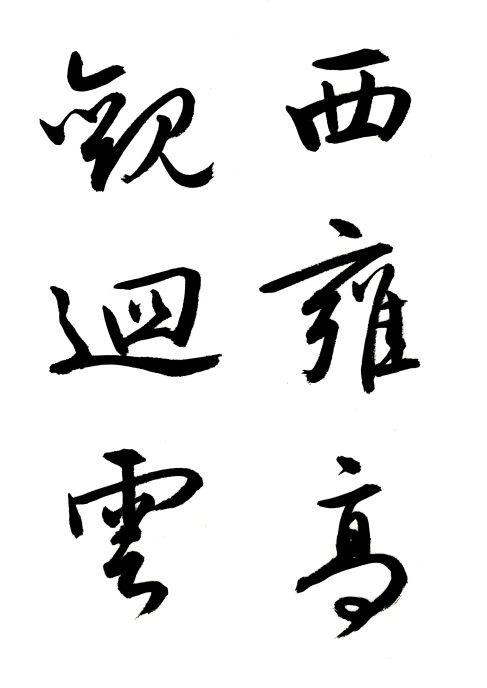 西雍高
觀迴雲